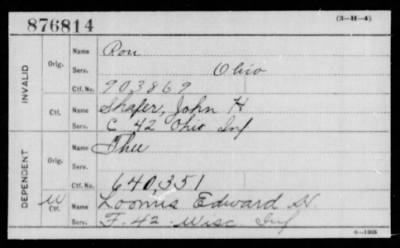 876814
(3-H-4)
INVALID
Orig.
Name Rou
Serv. Ohio
Ctf. No. 903869
Ctf.
Name Shafer, John H
Serv. C 42 Ohio Inf
DEPENDENT
Orig.
Name Thee
Serv.
Ctf. No. 640,351
W
Ctf.
Name Loomis Edward W.
Serv. F. 42 Wisc Inf